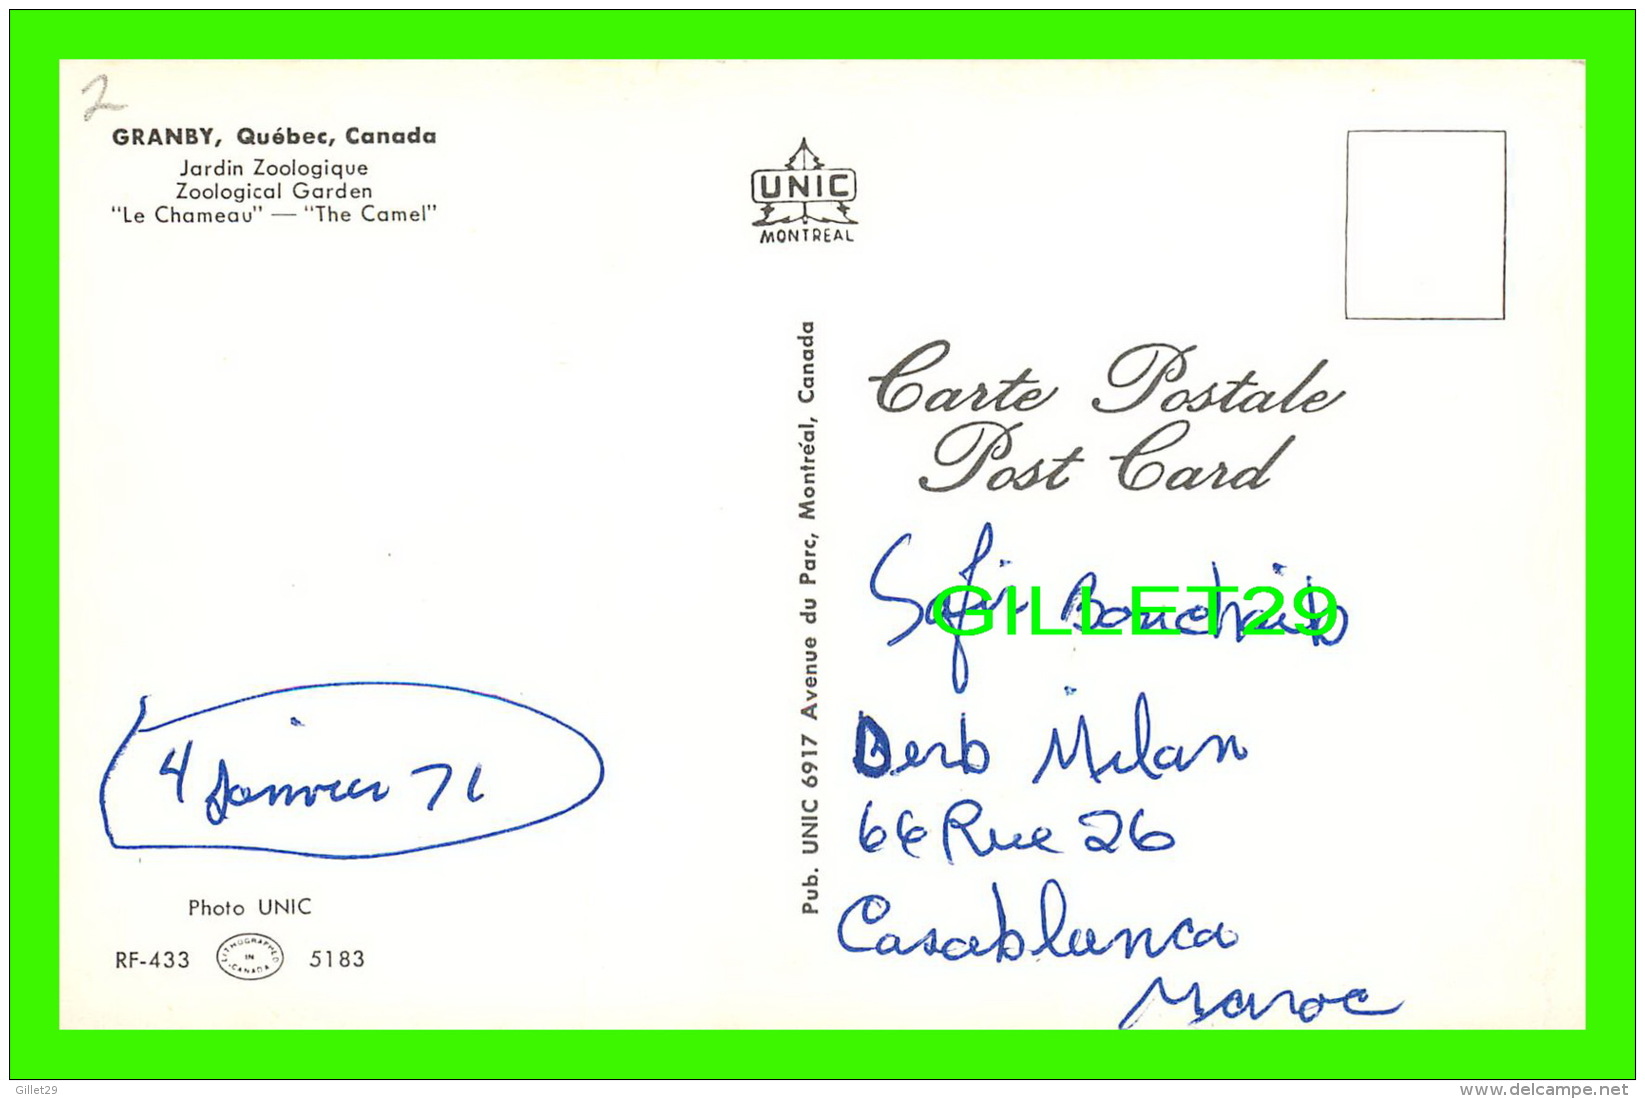 2
GRANBY, Québec, Canada
Jardin Zoologique
Zoological Garden
"Le Chameau" — "The Camel"
UNIC
MONTREAL
Pub. UNIC 6917 Avenue du Parc, Montréal, Canada
Carte Postale
Post Card
Safir Bouchaib
GILLET29
Derb Milan
66 Rue 26
Casablanca
Maroc
4 Janvier 71
Photo UNIC
RF-433 LITHOGRAPHED IN CANADA 5183
Gillet29
www.delcampe.net